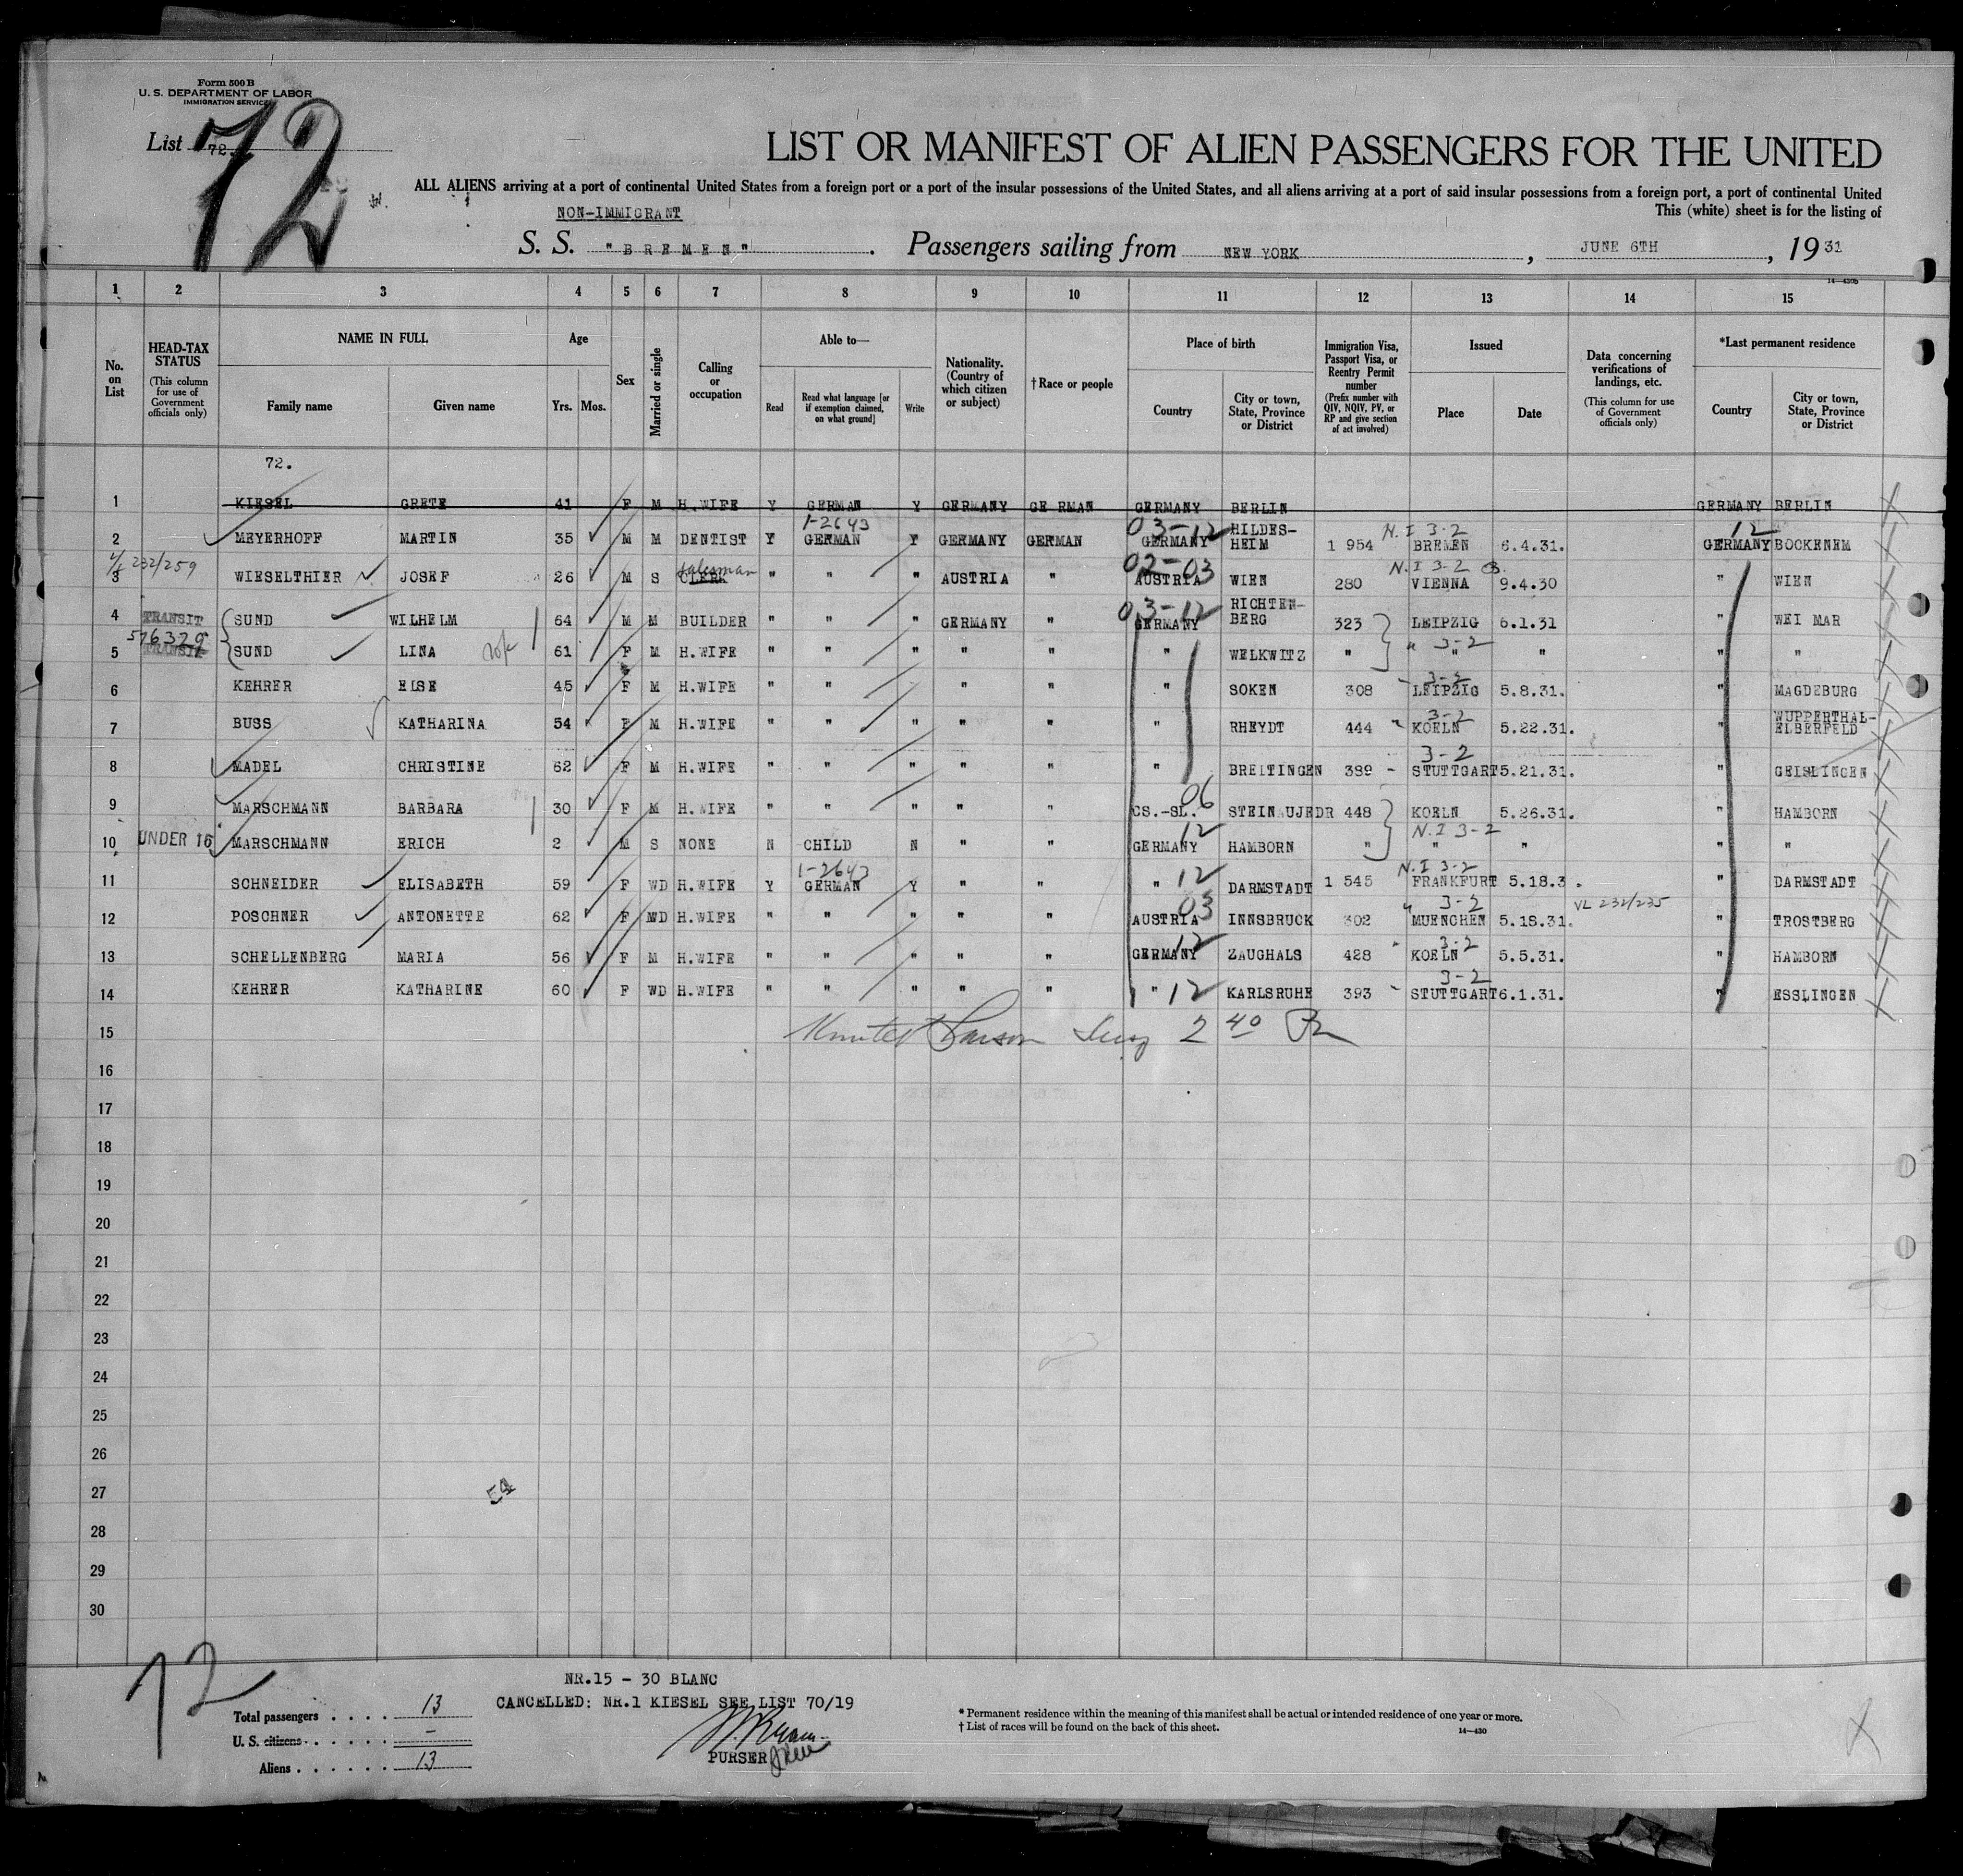 Form 500 B
U. S. DEPARTMENT OF LABOR
IMMIGRATION SERVICE
List 72.
72
LIST OR MANIFEST OF ALIEN PASSENGERS FOR THE UNITED
ALL ALIENS arriving at a port of continental United States from a foreign port or a port of the insular possessions of the United States, and all aliens arriving at a port of said insular possessions from a foreign port, a port of continental United
This (white) sheet is for the listing of
NON-IMMIGRANT
S. S. "BREMEN". Passengers sailing from NEW YORK, JUNE 6TH, 19 31
14—430b
1 2 3 4 5 6 7 8 9 10 11 12 13 14 15
No. on List
HEAD-TAX STATUS (This column for use of Government officials only)
NAME IN FULL Family name Given name
Age Yrs. Mos.
Sex
Married or single
Calling or occupation
Able to— Read Read what language [or if exemption claimed, on what ground] Write
Nationality. (Country of which citizen or subject)
†Race or people
Place of birth Country City or town, State, Province or District
Immigration Visa, Passport Visa, or Reentry Permit number (Prefix number with QIV, NQIV, PV, or RP and give section of act involved)
Issued Place Date
Data concerning verifications of landings, etc. (This column for use of Government officials only)
*Last permanent residence Country City or town, State, Province or District
72.
1 KIESEL GRETE 41 F M H.WIFE Y GERMAN Y GERMANY GE RMAN GERMANY BERLIN GERMANY BERLIN
1-2643 03-12 N.I 3-2 12
2 MEYERHOFF MARTIN 35 M M DENTIST Y GERMAN Y GERMANY GERMAN GERMANY HILDES-HEIM 1 954 BREMEN 6.4.31. GERMANY BOCKENEM
232/259 salesman 02-03 N.I 3-2
3 WIESELTHIER JOSEF 26 M S CLERK " " " AUSTRIA " AUSTRIA WIEN 280 VIENNA 9.4.30 " WIEN
03-12
4 TRANSIT SUND WILHELM 64 M M BUILDER " " " GERMANY " GERMANY RICHTEN-BERG 323 LEIPZIG 6.1.31 " WEI MAR
576329 3-2
5 TRANSIT SUND LINA 61 F M H.WIFE " " " " " " WELKWITZ " " " " "
3-2
6 KEHRER ELSE 45 F M H.WIFE " " " " " " SOKEN 308 LEIPZIG 5.8.31. " MAGDEBURG
3-2
7 BUSS KATHARINA 54 F M H.WIFE " " " " " " RHEYDT 444 KOELN 5.22.31. " WUPPERTHAL-ELBERFELD
3-2
8 MADEL CHRISTINE 62 F M H.WIFE " " " " " " BREITINGEN 389 STUTTGART 5.21.31. " GEISLINGEN
06
9 MARSCHMANN BARBARA 30 F M H.WIFE " " " " " CS.-SL. STEIN UJEDR 448 KOELN 5.26.31. " HAMBORN
12 N.I 3-2
10 UNDER 16 MARSCHMANN ERICH 2 M S NONE N CHILD N " " GERMANY HAMBORN " " " " "
1-2643 12 N.I 3-2
11 SCHNEIDER ELISABETH 59 F WD H.WIFE Y GERMAN Y " " " DARMSTADT 1 545 FRANKFURT 5.18.3 . " DARMSTADT
03 3-2 VL 232/235
12 POSCHNER ANTONETTE 62 F WD H.WIFE " " " " " AUSTRIA INNSBRUCK 302 MUENCHEN 5.18.31. " TROSTBERG
12 3-2
13 SCHELLENBERG MARIA 56 F M H.WIFE " " " " " GERMANY ZAUGHALS 428 KOELN 5.5.31. " HAMBORN
12 3-2
14 KEHRER KATHARINE 60 F WD H.WIFE " " " " " " KARLSRUHE 393 STUTTGART 6.1.31. " ESSLINGEN
15 2 40
16
17
18
19
20
21
22
23
24
25
26
27
28
29
30
72
NR.15 - 30 BLANC
CANCELLED: NR.1 KIESEL SEE LIST 70/19
Total passengers . . . . 13
U. S. citizens . . . . . . —
Aliens . . . . . . 13
PURSER
* Permanent residence within the meaning of this manifest shall be actual or intended residence of one year or more.
† List of races will be found on the back of this sheet.
14—430